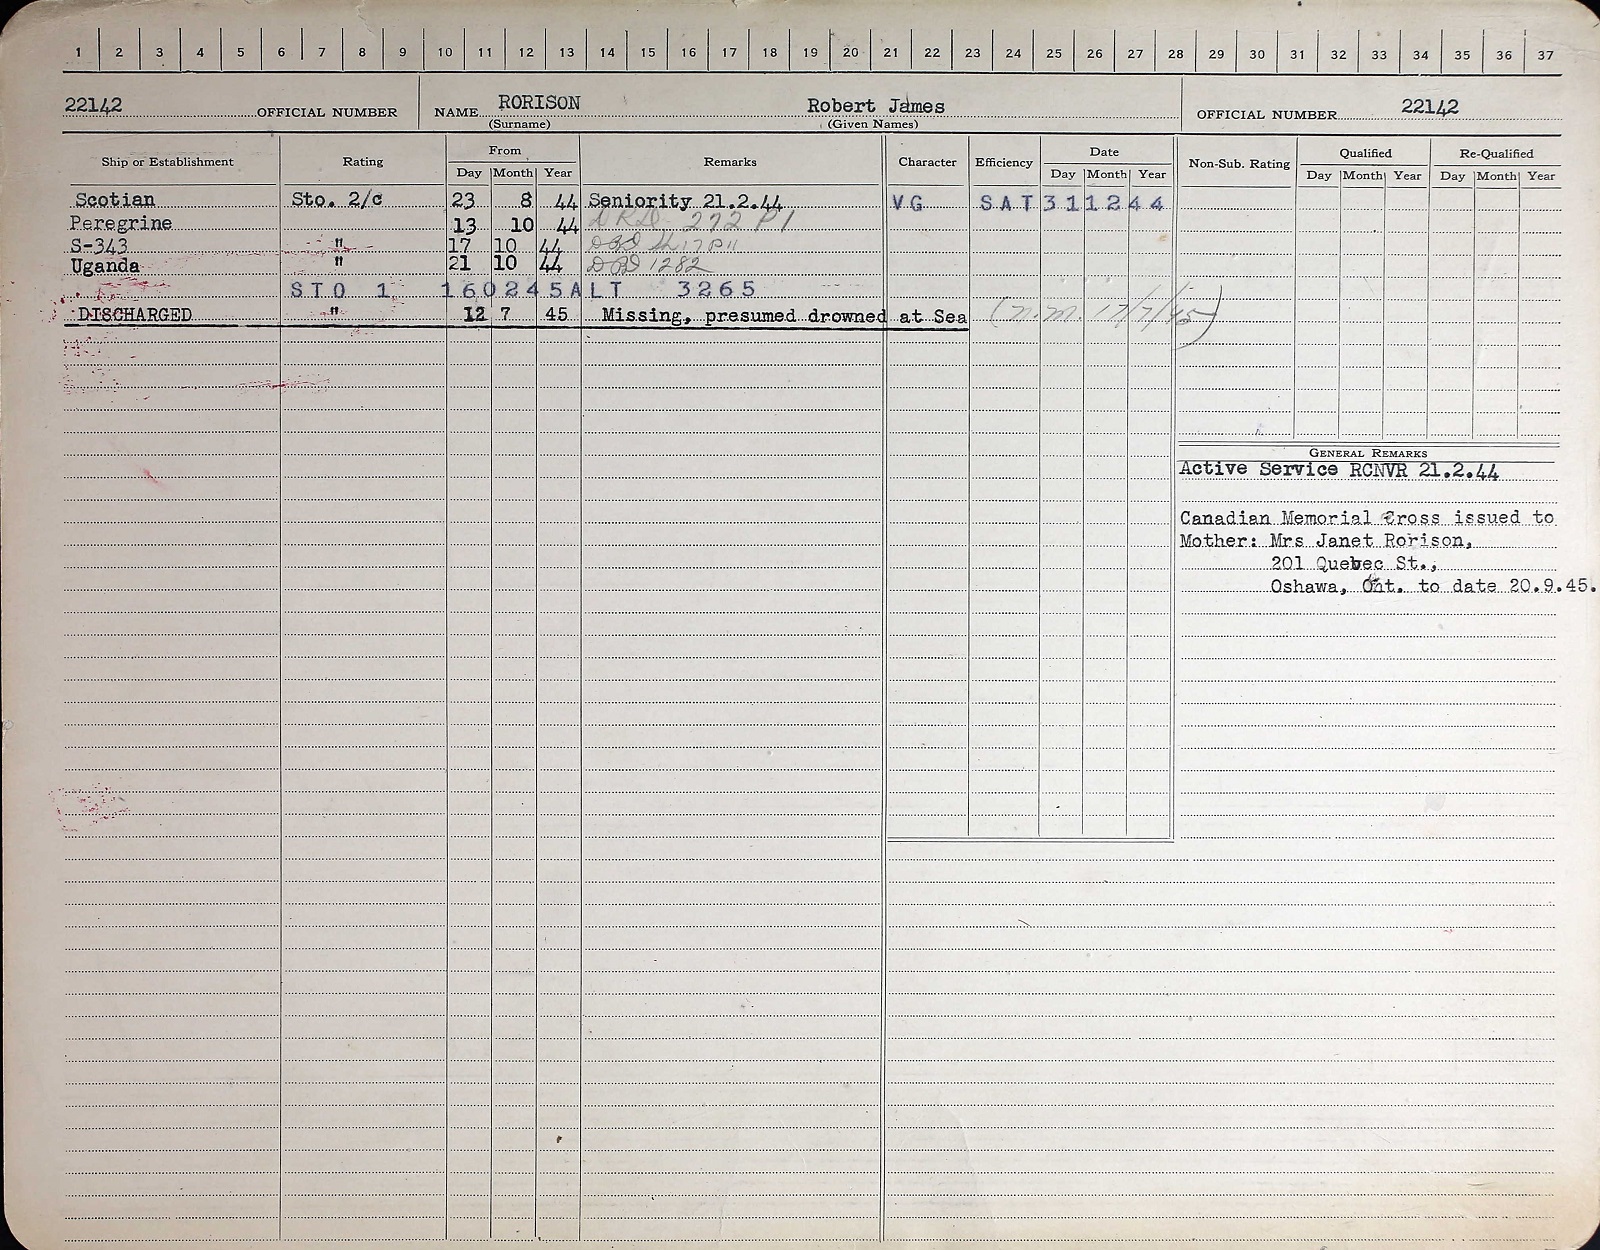 1 2 3 4 5 6 7 8 9 10 11 12 13 14 15 16 17 18 19 20 21 22 23 24 25 26 27 28 29 30 31 32 33 34 35 36 37
22142 OFFICIAL NUMBER NAME RORISON Robert James OFFICIAL NUMBER 22142
(Surname) (Given Names)
Ship or Establishment Rating From Remarks Character Efficiency Date Non-Sub. Rating Qualified Re-Qualified
Day Month Year Day Month Year Day Month Year Day Month Year
Scotian Sto. 2/c 23 8 44 Seniority 21.2.44 VG SAT 311244
Peregrine 13 10 44 272 P1
S-343 " 17 10 44
Uganda " 21 10 44 1282
STO 1 160245 ALT 3265
DISCHARGED " 12 7 45 Missing, presumed drowned at Sea (N.M. 17/7/45)
GENERAL REMARKS
Active Service RCNVR 21.2.44
Canadian Memorial Cross issued to
Mother: Mrs Janet Rorison,
201 Quebec St.,
Oshawa, Ont. to date 20.9.45.